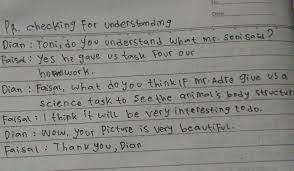 No.
Date
PR. checking for understanding
Dian : Toni, do you understand what mr. soni said?
Faisal : Yes he gave us task four our
homework.
Dian : Faisal, what do you think IF mr. Adre give us a
science task to see the animal's body structur
Faisal : I think it will be very interesting to do.
Dian : Wow, your Picture is very beautiful.
Faisal : Thank you, Dian